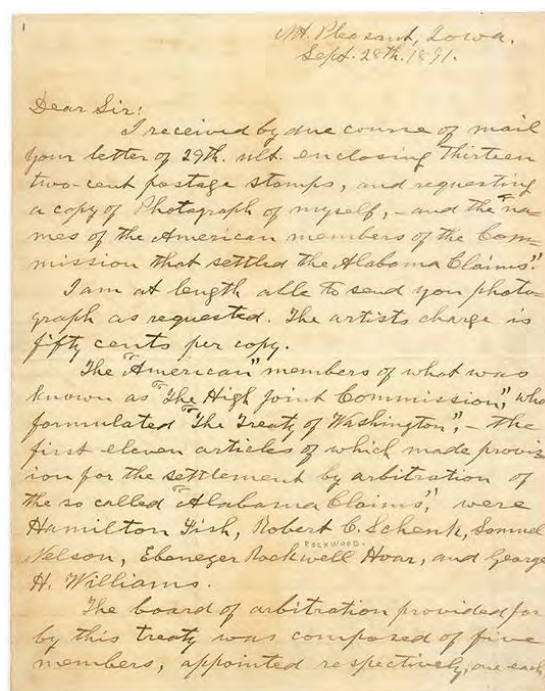 1
Mt. Pleasant, Iowa.
Sept. 28th. 1891.
Dear Sir:
I received by due course of mail
your letter of 29th. ult. enclosing thirteen
two-cent postage stamps, and requesting
a copy of Photograph of myself, – and the "na-
mes of the American members of the Com-
mission that settled the Alabama Claims."
I am at length able to send you photo-
graph as requested. The artists charge is
fifty cents per copy.
The "American" members of what was
known as "The High Joint Commission," who
formulated "The Treaty of Washington", – the
first eleven articles of which made provis-
ion for the settlement by arbitration of
the so called "Alabama Claims", were
Hamilton Fish, Robert C. Schenk, Samuel
Nelson, Ebenezer Rockwell Hoar, and George
ROCKWOOD.
H. Williams.
The board of arbitration provided for
by this treaty was composed of five
members, appointed respectively, one each,